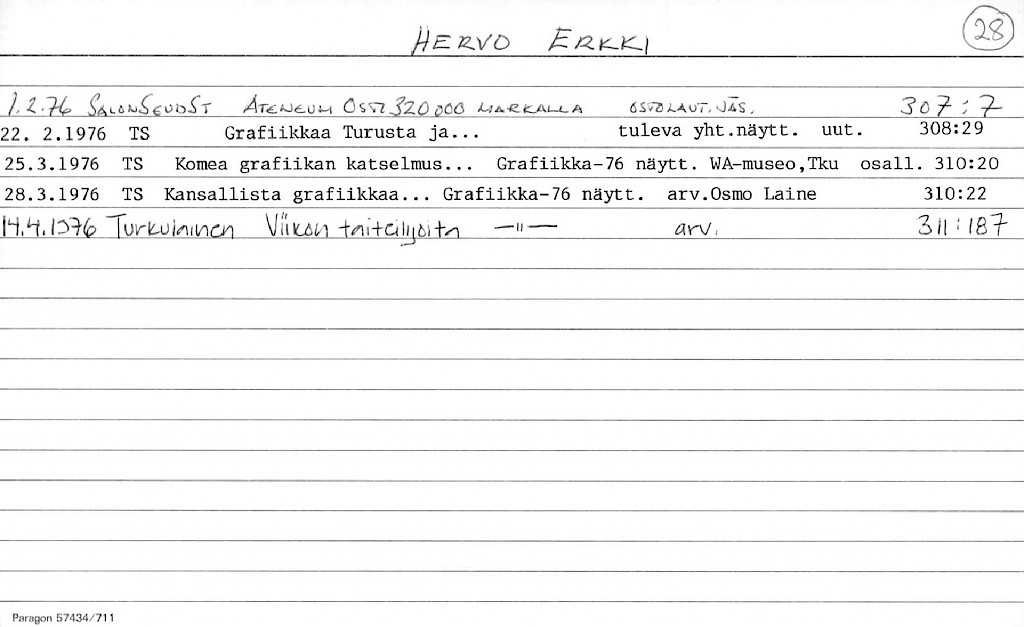 HERVO ERKKI 28
1.2.76 SALONSEUDST ATENEUM OSTI 320 000 MARKALLA OSTOLAUT. JÄS. 307:7
22. 2.1976 TS Grafiikkaa Turusta ja... tuleva yht.näytt. uut. 308:29
25.3.1976 TS Komea grafiikan katselmus... Grafiikka-76 näytt. WA-museo,Tku osall. 310:20
28.3.1976 TS Kansallista grafiikkaa... Grafiikka-76 näytt. arv.Osmo Laine 310:22
14.4.1976 Turkulainen Viikon taiteilijoita —"— arv. 311:187
Paragon 57434/711